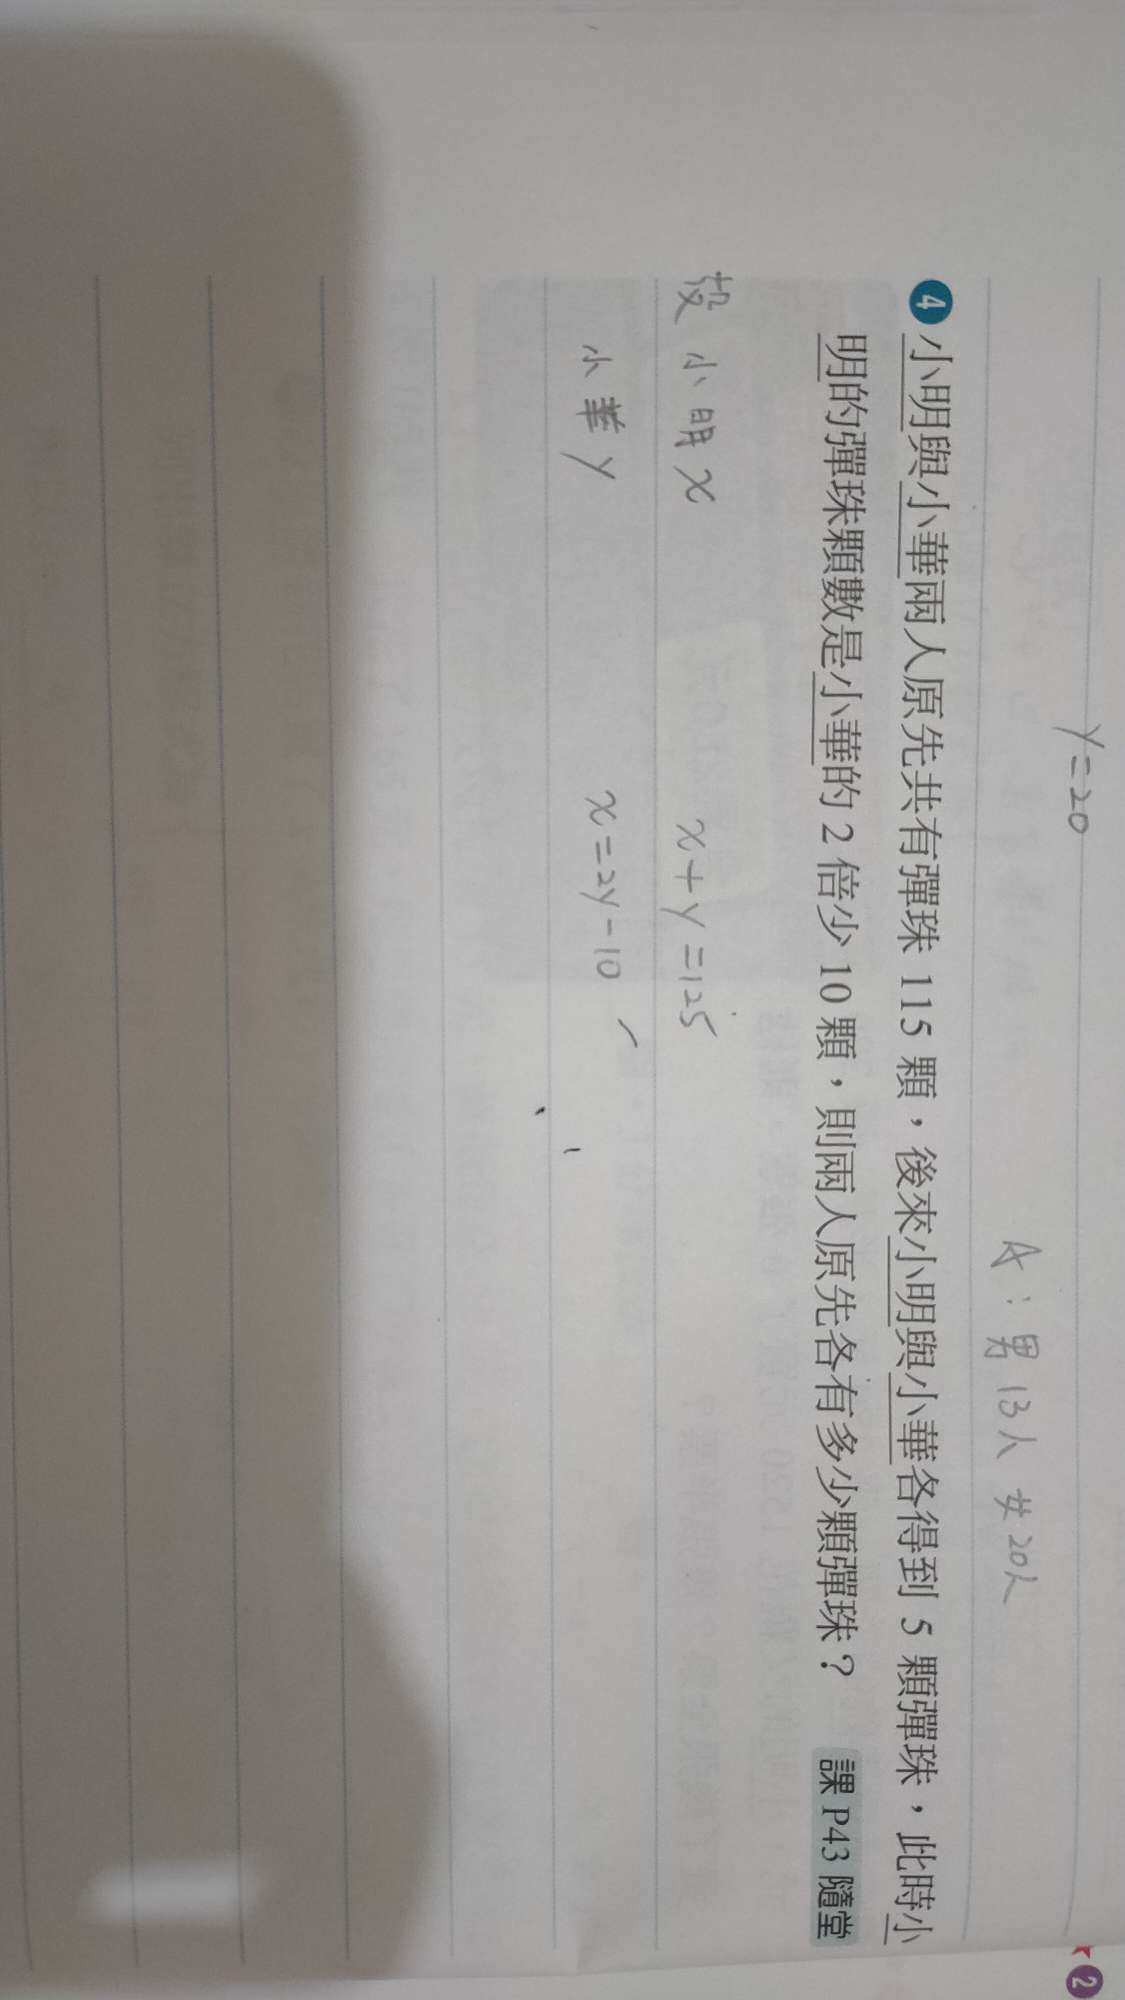 y=20
A：男13人 女20人
4 小明與小華兩人原先共有彈珠 115 顆，後來小明與小華各得到 5 顆彈珠，此時小
明的彈珠顆數是小華的 2 倍少 10 顆，則兩人原先各有多少顆彈珠？ 課 P43 隨堂
設 小明 x x+y=125
小華 y x=2y-10
2